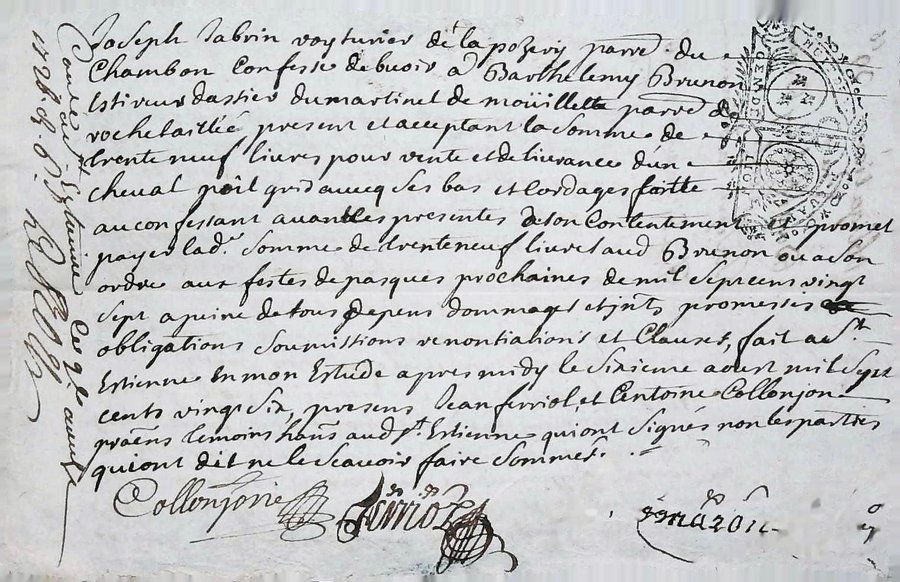 Joseph Jabrin voyturier de la pozery parre. du
Chambon Confesse debuoir a Barthelemy Brunon
Estireur dastier du martinet de moüillette parre de
rochetaillée present et acceptant la Somme de
trente neuf livres pour vente et delivrance dun
cheval poil gris avecq Ses bas et Cordages faitte
au confessant avant les presentes de son Contentement et promet
payer lad.e Somme de trente neuf livres aud Brunon ou a Son
ordre aux festes de pasques prochaines de mil Sept cens vingt
Sept a peine de tous depens dommages et jnts promesses
obligations Soumissions renontiations et Clauses, fait a St.
Estienne En mon Estude apres midy le Sixieme aoust mil Sept
cents vingt Six, presens Jean ferriol, et Centoine Collonjon
praens temoins hans aud St. Estienne qui ont Signés non les parties
qui ont dit ne le Scavoir faire Sommés.
Collonjonie
fferrioz
Controllé a St Estienne Ce 9e aoust
1726. R. 6 s.
GEN DE LION